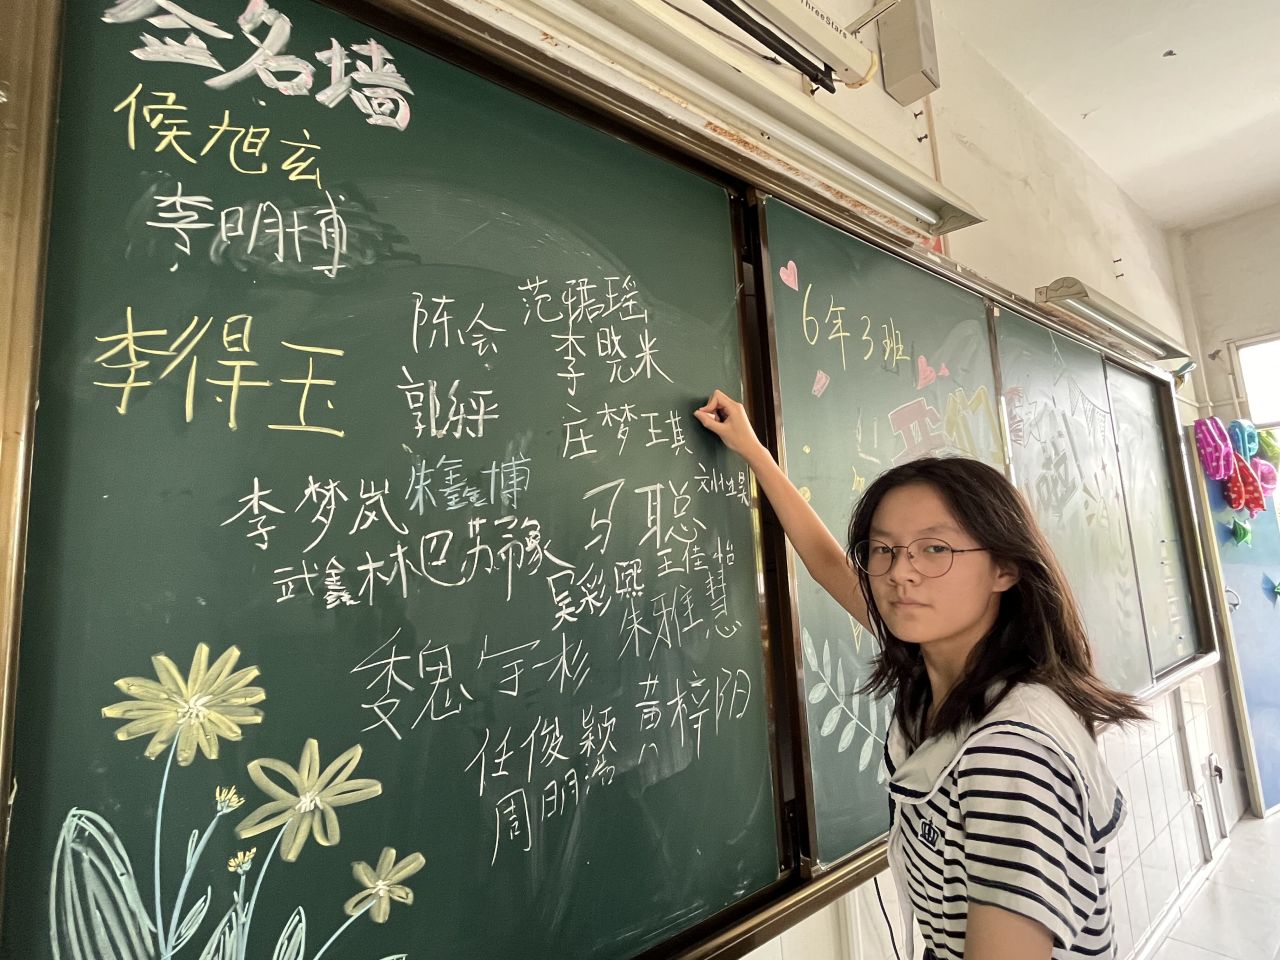 ThreeStars
签名墙
侯旭玄
李明博
李得玉
陈会
范珺瑶
李晓米
郭纾
庄梦琪
6年3班
李梦岚
朱鑫博
马聪
武鑫
林巴苏豫
吴彩熙
王佳怡
朱雅慧
魏宇杉
黄梓阳
任俊颖
周明浩